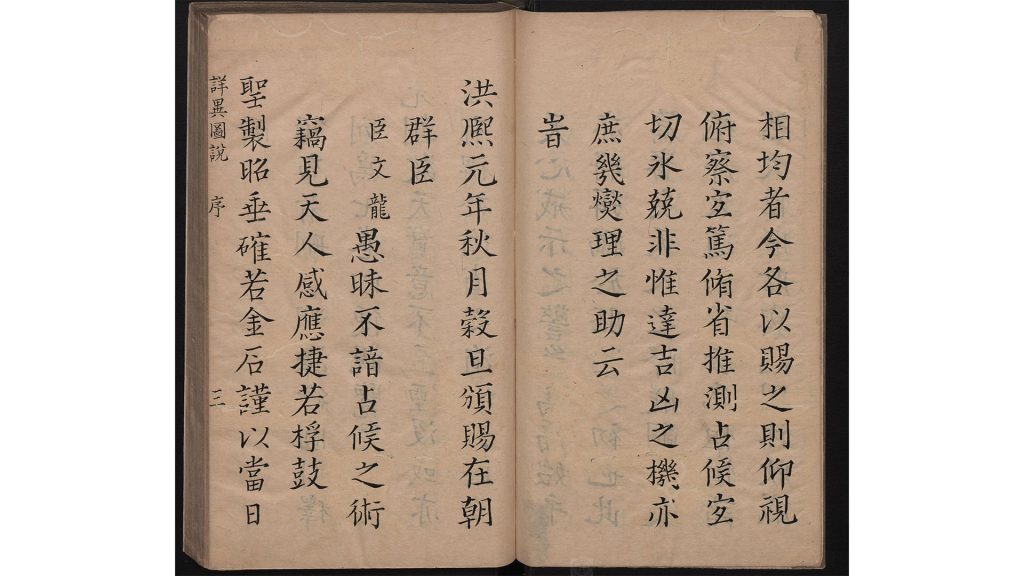 相均者今各以賜之則仰視
俯察宐篤脩省推測占候宐
切氷兢非惟達吉凶之機亦
庶幾燮理之助云
旹
洪熈元年秋月穀旦頒賜在朝
群臣
臣文龍愚昧不諳占候之術
竊見天人感應捷若桴鼓
聖製昭垂確若金石謹以當日
詳異圖說 序 三